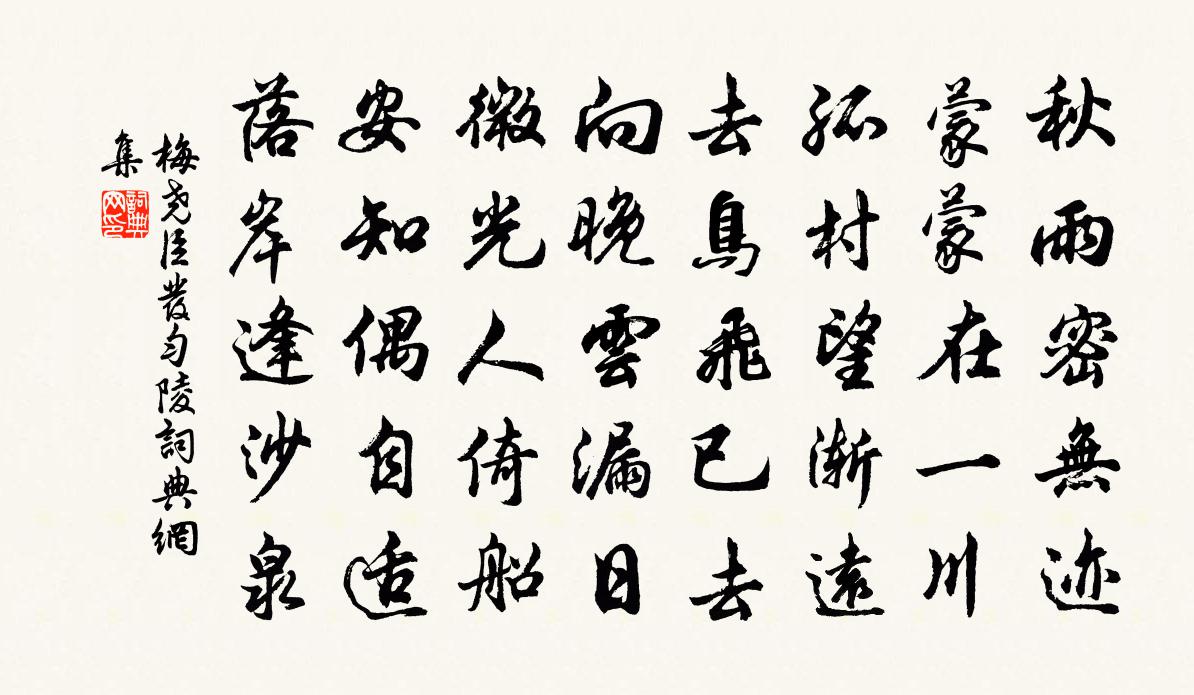 秋雨密無迹
蒙蒙在一川
孤村望渐遠
去鳥飛已去
向晚雲漏日
微光人倚船
安知偶自适
落岸逢沙泉
梅尧臣發勻陵詞典網
集
詞典网印